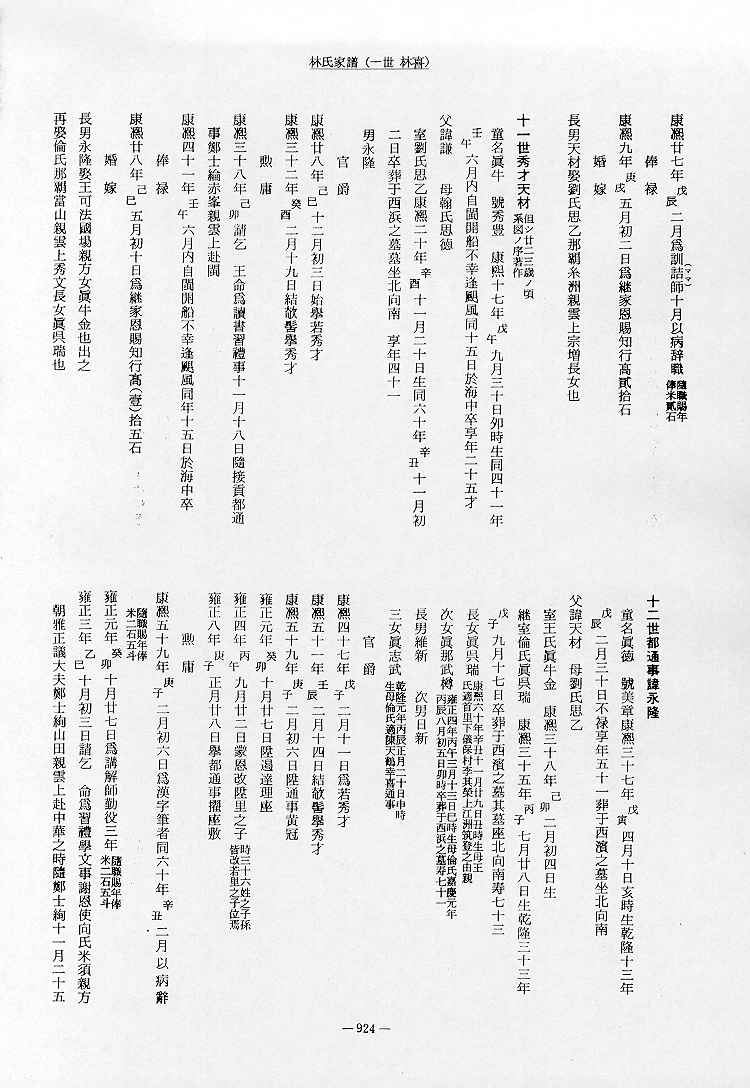 林氏家譜(一世 林喜)
康凞廿七年戊辰二月爲訓詰師十月以病辞職隨職賜年俸米貳石
(ママ)
俸禄
康凞九年庚戌五月初二日爲継家恩賜知行高貳拾石
婚嫁
長男天材娶劉氏思乙那覇糸洲親雲上宗增長女也
十一世秀才天材但シ廿二三歳ノ頃系図ノ序著作
童名眞牛 號秀豊 康熙十七年戊午九月三十日夘時生同四十一年
壬午六月内自閩開船不幸逢颶風同十五日於海中卒享年二十五才
父諱謙 母翰氏思德
室劉氏思乙康凞二十年辛酉十一月二十日生同六十年辛丑十一月初
二日卒葬于西浜之墓墓坐北向南 享年四十一
男永隆
官爵
康凞廿八年己巳十二月初三日始擧若秀才
康凞三十二年癸酉二月十九日結敧髻擧秀才
勲庸
康凞三十八年己卯請乞 王命爲讀書習禮事十一月十八日隨接貢都通
事鄭士綸赤峯親雲上赴閩
康凞四十一年壬午六月内自閩開船不幸逢颶風同年十五日於海中卒
俸禄
康凞廿八年己巳五月初十日爲継家恩賜知行高(壹)拾五石
婚嫁
長男永隆娶王可法國場親方女眞牛金也出之
再娶倫氏那覇當山親雲上秀文長女眞呉瑞也
十二世都通事諱永隆
童名眞德 號美章康凞三十七年戊寅四月十日亥時生乾隆十三年
戊辰二月三十日不禄享年五十一葬于西濱之墓坐北向南
父諱天材 母劉氏思乙
室王氏眞牛金 康凞三十八年己卯二月初四日生
継室倫氏眞呉瑞 康凞三十五年丙子七月廿八日生乾隆三十三年
戊子九月十七日卒葬于西濱之墓其墓座北向南寿七十三
長女眞呉瑞康凞六十年辛丑十一月廿九日丑時生母王氏適首里下儀保村李其榮上江洲筑登之由親
次女眞那武樽雍正四年丙午三月十三日巳時生母倫氏嘉慶元年丙辰八月初五日卯時卒葬于西浜之墓寿七十一
長男維新 次男日新
三女眞志武乾隆元年丙辰正月二十日申時生母倫氏適陳天鶴幸喜通事
官爵
康凞四十七年戊子二月十一日爲若秀才
康凞五十一年壬辰二月十四日結敧髻擧秀才
康凞五十九年庚子二月初六日陞通事黄冠
雍正元年癸卯十月廿七日陞遏達理座
雍正四年丙午九月廿二日蒙恩改陞里之子時三十六姓之子孫皆改若里之子位焉
雍正八年庚子正月廿八日擧都通事擢座敷
勲庸
康凞五十九年庚子二月初六日爲漢字筆者同六十年辛丑二月以病辭
隨職賜年俸米二石五斗
雍正元年癸卯十月廿七日爲講解師勤役三年隨職賜年俸米二石五斗
雍正三年乙巳十月初三日請乞 命爲習禮學文事謝恩使向氏米須親方
朝雅正議大夫鄭士絢山田親雲上赴中華之時隨鄭士絢十一月二十五
—924—